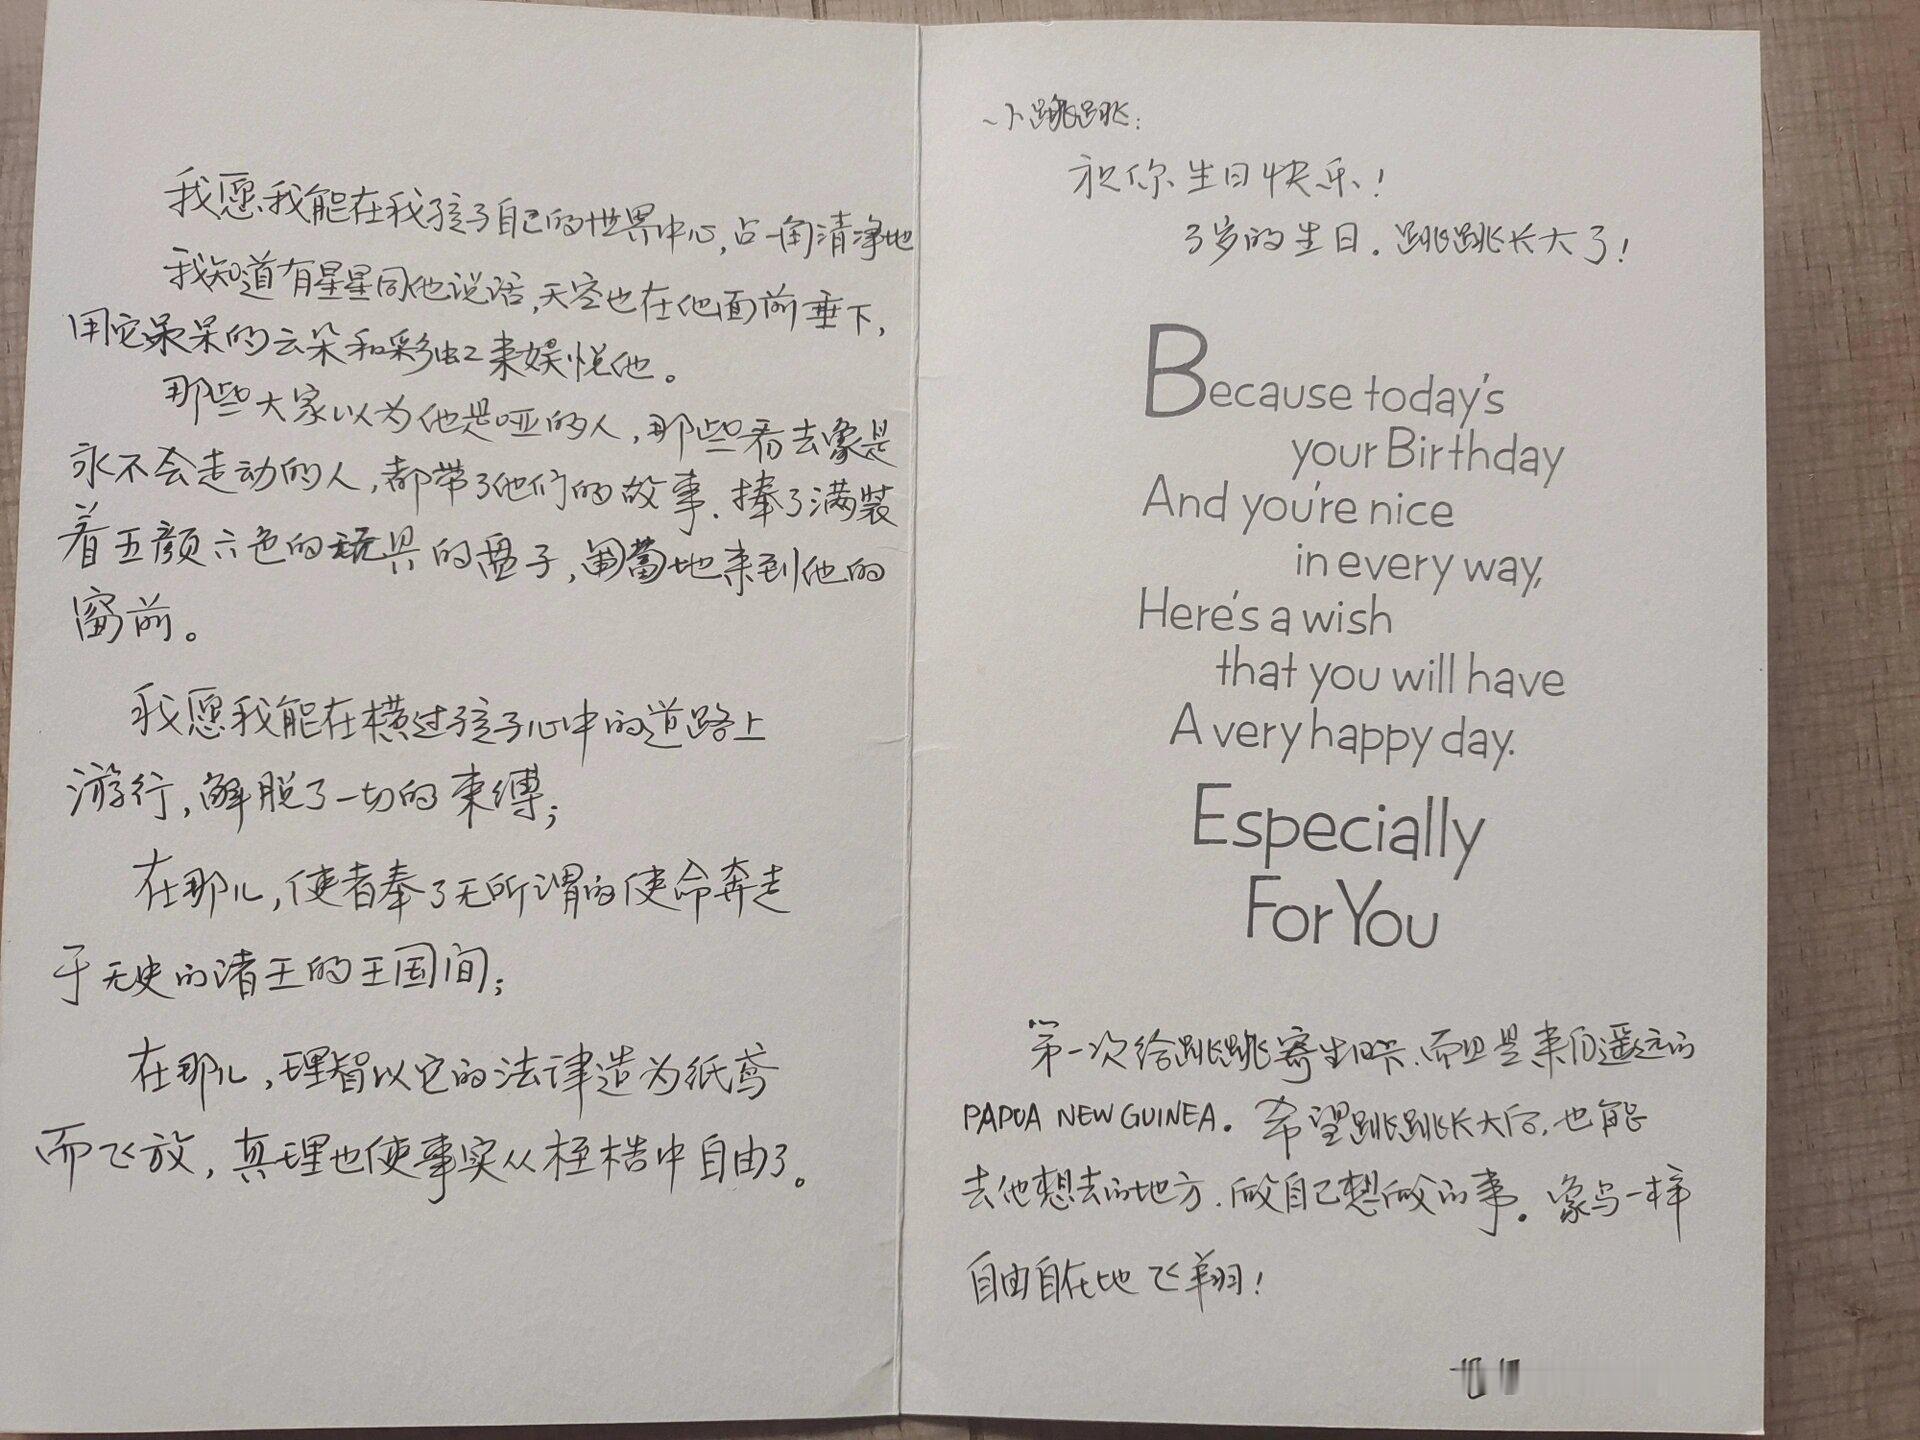 我愿我能在我孩子自己的世界中心,占一角清净地
我知道有星星同他说话,天空也在他面前垂下,
用它呆呆的云朵和彩虹来娱悦他。
那些大家以为他是哑的人,那些看去像是
永不会走动的人,都带了他们的故事.捧了满装
着五颜六色的玩具的盘子,匍匐地来到他的
窗前。
我愿我能在横过孩子心中的道路上
游行,解脱了一切的束缚;
在那儿,使者奉了无所谓的使命奔走
于无史的诸王的王国间;
在那儿,理智以它的法律造为纸鸢
而飞放,真理也使事实从桎梏中自由了。
小跳跳:
祝你生日快乐!
3岁的生日.跳跳长大了!
Because today's
your Birthday
And you're nice
in every way,
Here's a wish
that you will have
A very happy day.
Especially
For You
第一次给跳跳寄生日卡.而且是来自遥远的
PAPUA NEW GUINEA。希望跳跳长大后.也能
去他想去的地方.做自己想做的事。像鸟一样
自由自在地飞翔!